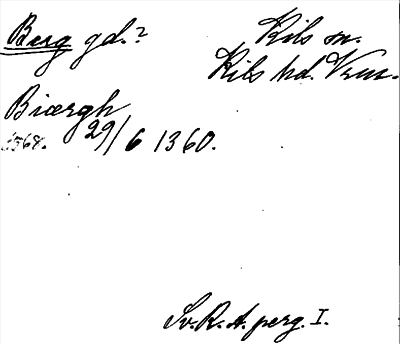 Berg gd.?
Kils sn.
Kils hd. Vrm.
Biærgh
29/6 1360.
Sv. R. A. perg. I.